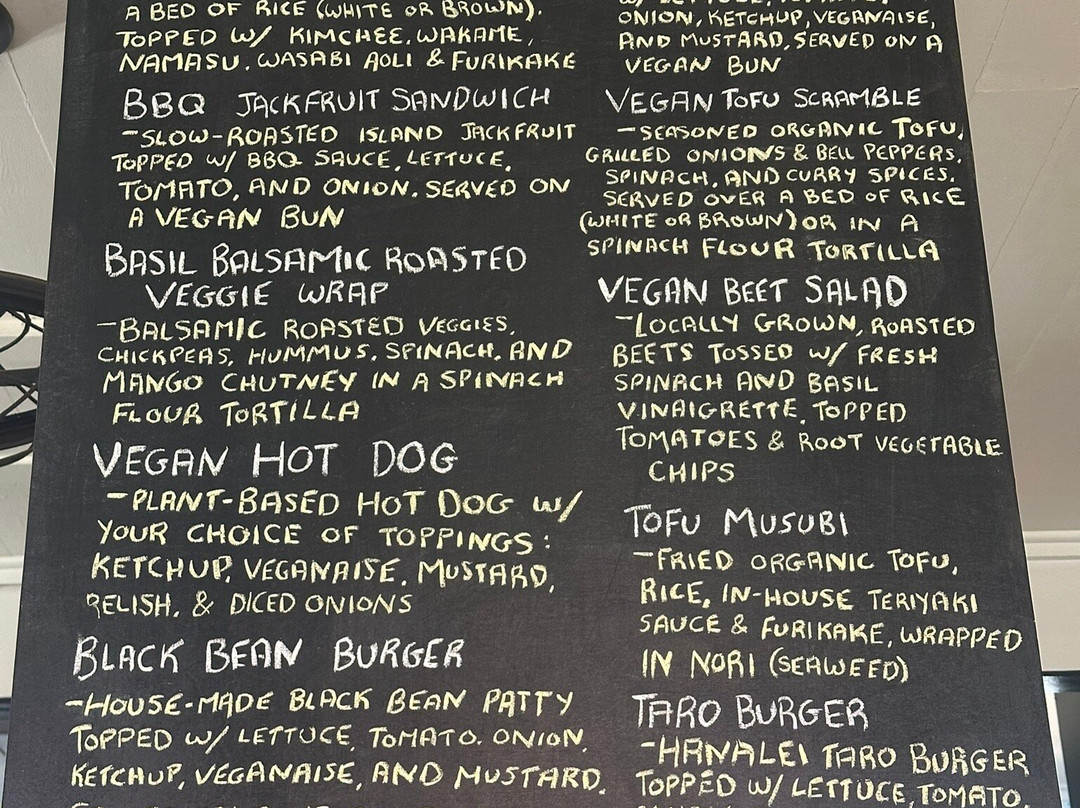 A BED OF RICE (WHITE OR BROWN).
TOPPED W/ KIMCHEE, WAKAME,
NAMASU, WASABI AOLI & FURIKAKE
BBQ JACKFRUIT SANDWICH
-SLOW-ROASTED ISLAND JACKFRUIT
TOPPED W/ BBQ SAUCE, LETTUCE,
TOMATO, AND ONION. SERVED ON
A VEGAN BUN
BASIL BALSAMIC ROASTED
VEGGIE WRAP
-BALSAMIC ROASTED VEGGIES,
CHICKPEAS, HUMMUS, SPINACH, AND
MANGO CHUTNEY IN A SPINACH
FLOUR TORTILLA
VEGAN HOT DOG
-PLANT-BASED HOT DOG W/
YOUR CHOICE OF TOPPINGS:
KETCHUP, VEGANAISE, MUSTARD,
RELISH, & DICED ONIONS
BLACK BEAN BURGER
-HOUSE-MADE BLACK BEAN PATTY
TOPPED W/ LETTUCE, TOMATO, ONION,
KETCHUP, VEGANAISE, AND MUSTARD.
ONION, KETCHUP, VEGANAISE,
AND MUSTARD. SERVED ON A
VEGAN BUN
VEGAN TOFU SCRAMBLE
-SEASONED ORGANIC TOFU,
GRILLED ONIONS & BELL PEPPERS,
SPINACH, AND CURRY SPICES.
SERVED OVER A BED OF RICE
(WHITE OR BROWN) OR IN A
SPINACH FLOUR TORTILLA
VEGAN BEET SALAD
-LOCALLY GROWN, ROASTED
BEETS TOSSED W/ FRESH
SPINACH AND BASIL
VINAIGRETTE, TOPPED
TOMATOES & ROOT VEGETABLE
CHIPS
TOFU MUSUBI
-FRIED ORGANIC TOFU,
RICE, IN-HOUSE TERIYAKI
SAUCE & FURIKAKE, WRAPPED
IN NORI (SEAWEED)
TARO BURGER
-HANALEI TARO BURGER
TOPPED W/ LETTUCE, TOMATO,